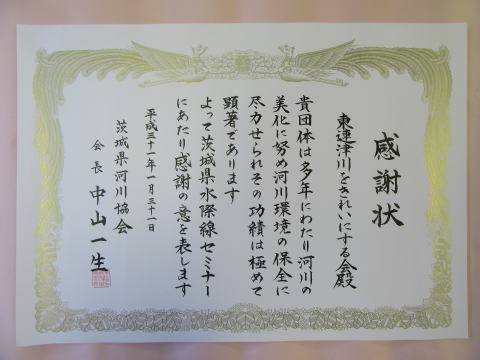 感謝状
東連津川をきれいにする会殿
貴団体は多年にわたり河川の
美化に努め河川環境の保全に
尽力せられその功績は極めて
顕著であります
よって茨城県水際線セミナー
にあたり感謝の意を表します
平成三十一年一月三十一日
茨城県河川協会
会長 中山一生